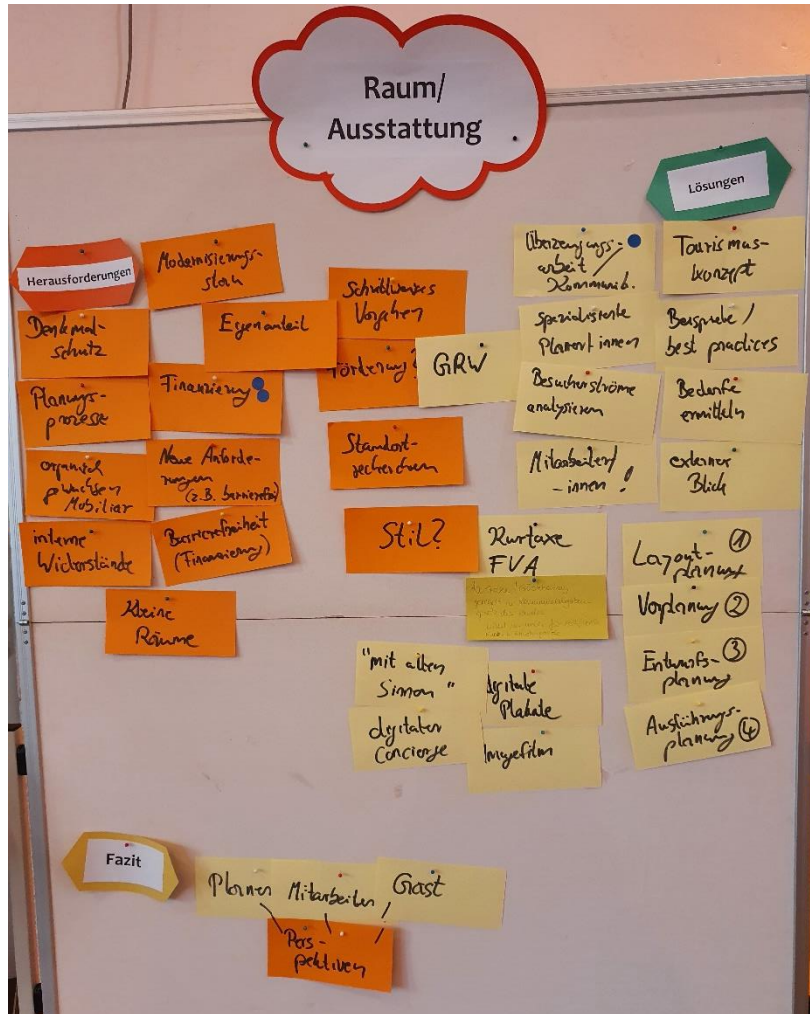 Raum/
Ausstattung
Lösungen
Herausforderungen
Modernisierungs-
stau
Denkmal-
schutz
Eigenanteil
Schrittweises
Vorgehen
Planungs-
prozesse
Finanzierung
Förderung?
GRW
organisch
gewachsen
Mobiliar
Neue Anforde-
rungen
(z.B. barrierefrei)
Standort-
recherchen
interne
Widerstände
Barrierefreiheit
(Finanzierung)
Stil?
Kleine
Räume
Überzeugungs-
arbeit
Kommunik.
Tourismus-
konzept
Spezialisierte
Planer/innen
Beispiele/
best practices
Besucherströme
analysieren
Bedarfe
ermitteln
Mitarbeiter/
-innen!
externer
Blick
Kurtaxe
FVA
Layout- ①
planung
Vorplanung ②
Entwurfs- ③
planung
Ausführungs-
planung ④
"mit allen
Sinnen"
digitale
Plakate
digitaler
Concierge
Imagefilm
Fazit
Planer
Mitarbeiter
Gast
Pers-
pektiven